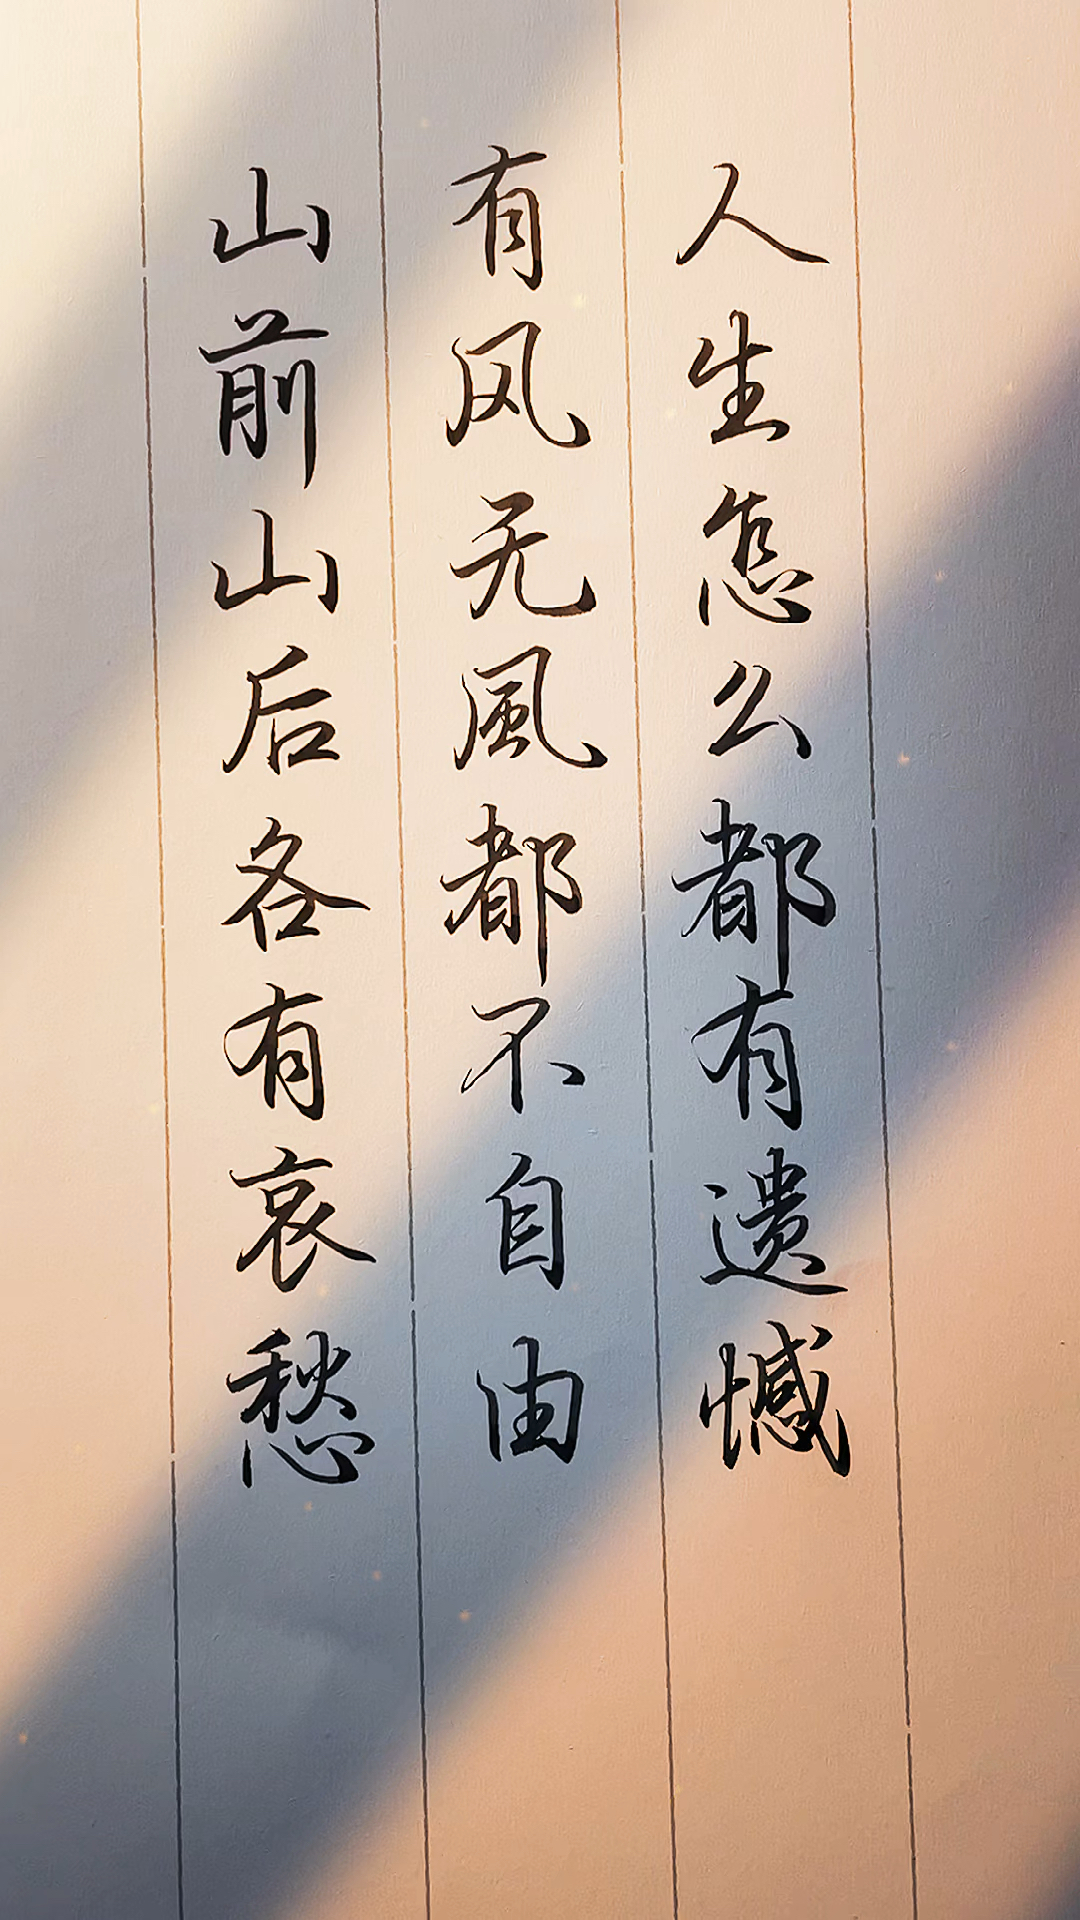 人生怎么都有遗憾
有风无風都不自由
山前山后各有哀愁